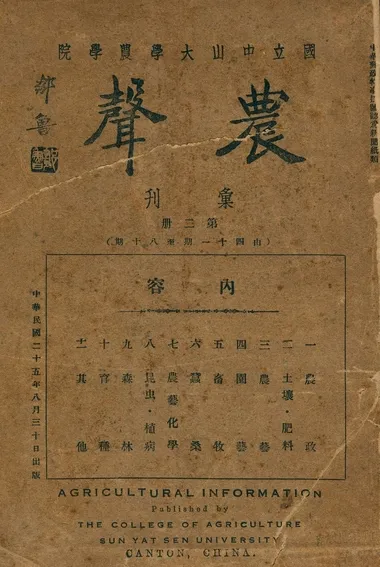 國立中山大學農學院
農聲
鄒魯
彙刊
第三冊
(由四十一期至八十期)
內容
一 農政
二 土壤・肥料
三 農藝
四 園藝
五 畜牧
六 蠶桑
七 農藝化學
八 昆虫・植病
九 森林
十 育種
十一 其他
中華民國二十五年八月三十日出版
AGRICULTURAL INFORMATION
Published by
THE COLLEGE OF AGRICULTURE
SUN YAT SEN UNIVERSITY
CANTON, CHINA.